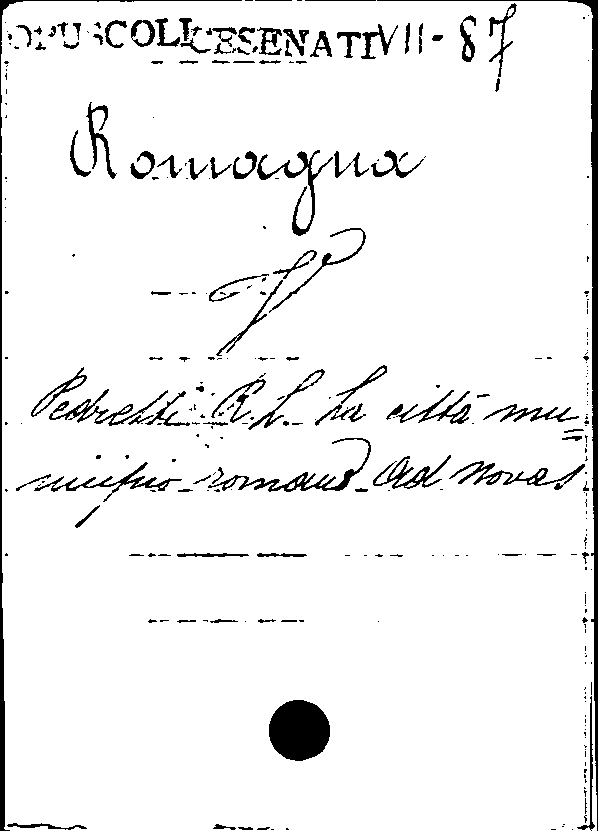 OPUSCOLI CESENATI VII - 87
Romagna
V
Pedretti R. L. La città mu=
nicipio romano Ad Novas